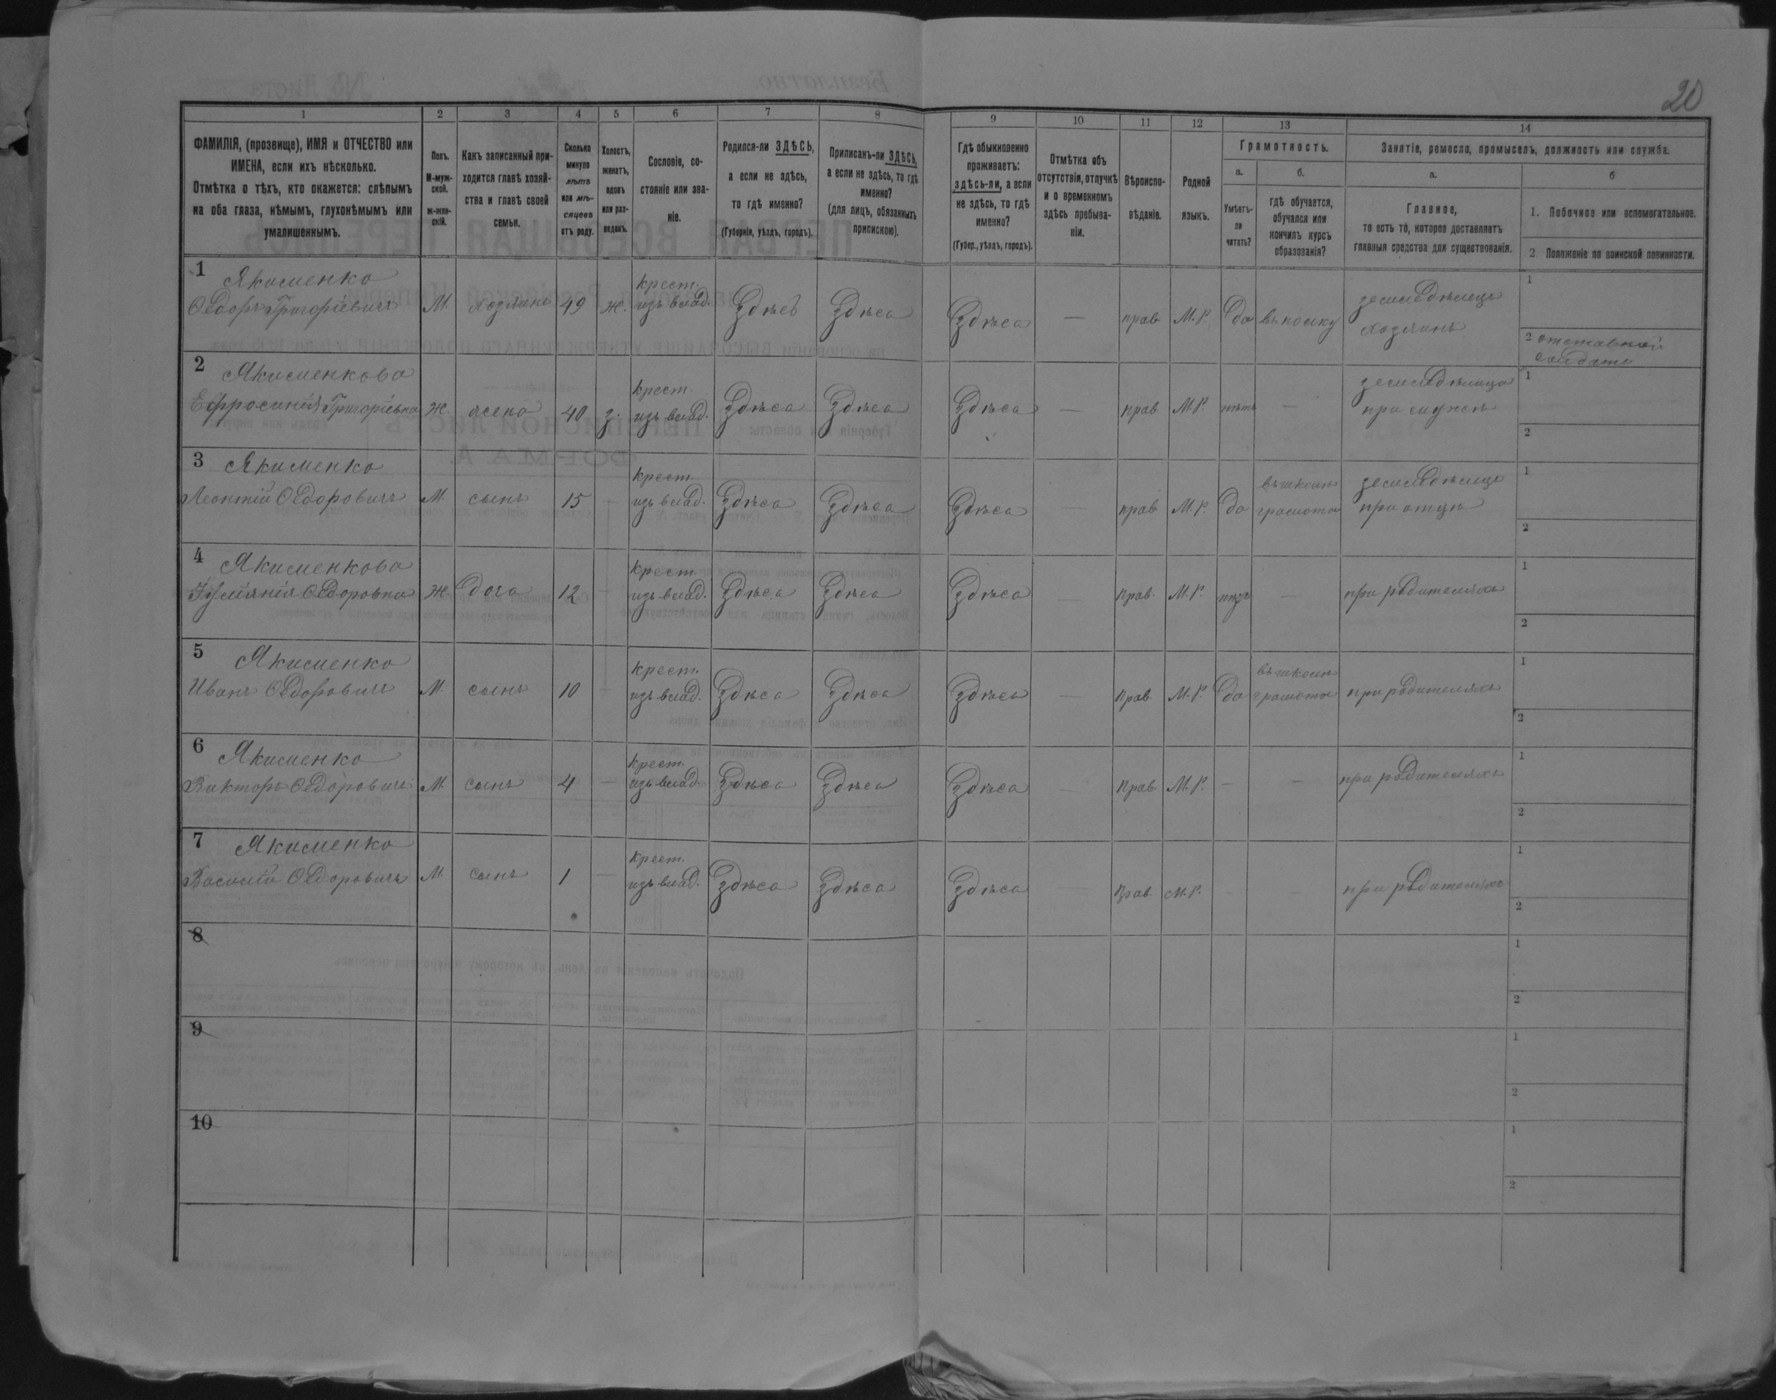 20
1 2 3 4 5 6 7 8 9 10 11 12 13 14
ФАМИЛІЯ, (прозвище), ИМЯ и ОТЧЕСТВО или
ИМЕНА, если ихъ нѣсколько.
Отмѣтка о тѣхъ, кто окажется: слѣпымъ
на оба глаза, нѣмымъ, глухонѣмымъ или
умалишеннымъ.
Полъ.
М-муж-
ской.
ж-жен-
скій.
Какъ записанный при-
ходится главѣ хозяй-
ства и главѣ своей
семьи.
Сколько
минуло
лѣтъ
или мѣ-
сяцевъ
отъ роду.
Холостъ,
женатъ,
вдовъ
или раз-
веденъ.
Сословіе, со-
стояніе или зва-
ніе.
Родился-ли ЗДѢСЬ,
а если не здѣсь,
то гдѣ именно?
(Губернія, уѣздъ, городъ).
Приписанъ-ли ЗДѢСЬ,
а если не здѣсь, то гдѣ
именно?
(для лицъ, обязанныхъ
припискою).
Гдѣ обыкновенно
проживаетъ:
здѣсь-ли, а если
не здѣсь, то гдѣ
именно?
(Губер., уѣздъ, городъ).
Отмѣтка объ
отсутствіи, отлучкѣ
и о временномъ
здѣсь пребыва-
ніи.
Вѣроиспо-
вѣданіе.
Родной
языкъ.
Грамотность.
а.
Умѣетъ-
ли
читать?
б.
гдѣ обучается,
обучался или
кончилъ курсъ
образованія?
Занятіе, ремесло, промыселъ, должность или служба.
а.
Главное,
то есть то, которое доставляетъ
главныя средства для существованія.
б
1. Побочное или вспомогательное.
2 Положеніе по воинской повинности.
1 Якименко
Ѳедоръ Григоріевичъ М хозяинъ 49 ж. крест. изъ влад. Здѣсь Здѣсь Здѣсь — прав М.Р. да въ полку земледѣлецъ хозяинъ
1
2 отставной
солдатъ
2 Якименкова
Ефросинія Григорьевна Ж жена 40 з. крест. изъ влад. Здѣса Здѣса Здѣса — прав М.Р. нѣтъ — земледѣлица при мужѣ
1
2
3 Якименко
Леонтій Ѳедоровичъ М сынъ 15 — крест. изъ влад. Здѣса Здѣса Здѣса — прав М.Р. да въ школѣ грамоты земледѣлецъ при отцѣ
1
2
4 Якименкова
Ѳедоровна Ж дочь 12 — крест. изъ влад. Здѣса Здѣса Здѣса — прав. М.Р. нѣтъ — при родителяхъ
1
2
5 Якименко
Иванъ Ѳедоровичъ М сынъ 10 — крест. изъ влад. Здѣса Здѣса Здѣса — прав. М.Р. да въ школѣ грамоты при родителяхъ
1
2
6 Якименко
Викторъ Ѳедоровичъ М сынъ 4 — крест. изъ влад. Здѣса Здѣса Здѣса — прав М.Р. — — при родителяхъ
1
2
7 Якименко
Василій Ѳедоровичъ М сынъ 1 — крест. изъ влад. Здѣса Здѣса Здѣса — прав. М.Р. — — при родителяхъ
1
2
8
1
2
9
1
2
10
1
2